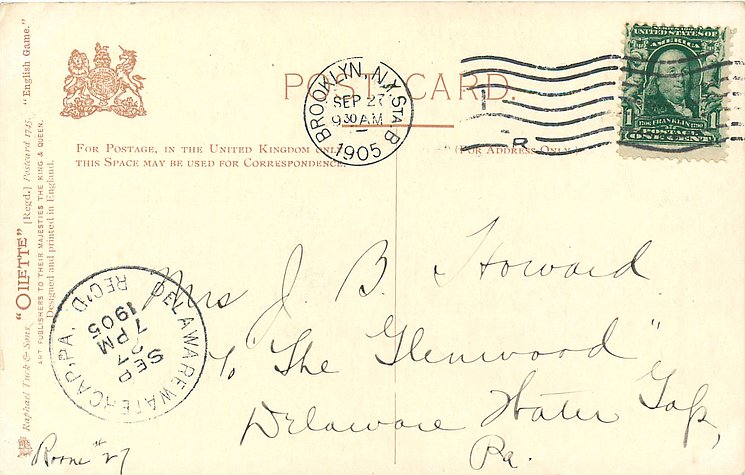 POST CARD.
FOR POSTAGE, IN THE UNITED KINGDOM ONLY
THIS SPACE MAY BE USED FOR CORRESPONDENCE.
(FOR ADDRESS ONLY.)
BROOKLYN, N.Y. STA B
SEP 27
9 30 AM
1905
UNITED STATES OF
AMERICA
FRANKLIN
1 1
POSTAGE
ONE CENT
Raphael Tuck & Sons' "OILETTE" [Regd.] Postcard 1745. "English Game."
ART PUBLISHERS TO THEIR MAJESTIES THE KING & QUEEN.
Designed and printed in England.
DELAWARE WATER GAP, PA. REC'D
SEP
27
7 PM
1905
Mrs J. B. Howard
To The "Glenwood"
Delaware Water Gap,
Pa.
Room # 27